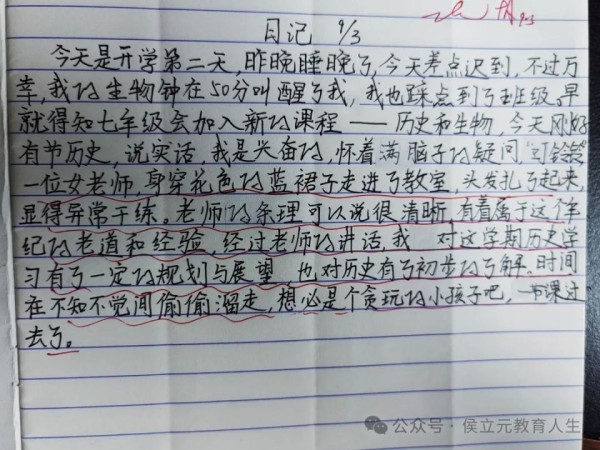 日记 9/3
今天是开学第二天,昨晚睡晚了,今天差点迟到,不过万
幸,我的生物钟在50分叫醒了我,我也踩点到了班级。早
就得知七年级会加入新的课程——历史和生物,今天刚好
有节历史,说实话,我是兴奋的,怀着满脑子的疑问"叮铃铃"
一位女老师,身穿花色的蓝裙子走进了教室,头发扎了起来,
显得异常干练。老师的条理可以说很清晰,有着属于这个年
纪的老道和经验,经过老师的讲话,我 对这学期历史学
习有了一定的规划与展望,也对历史有了初步的了解。时间
在不知不觉间偷偷溜走,想必是个贪玩的小孩子吧,一节课过
去了。
公众号·侯立元教育人生